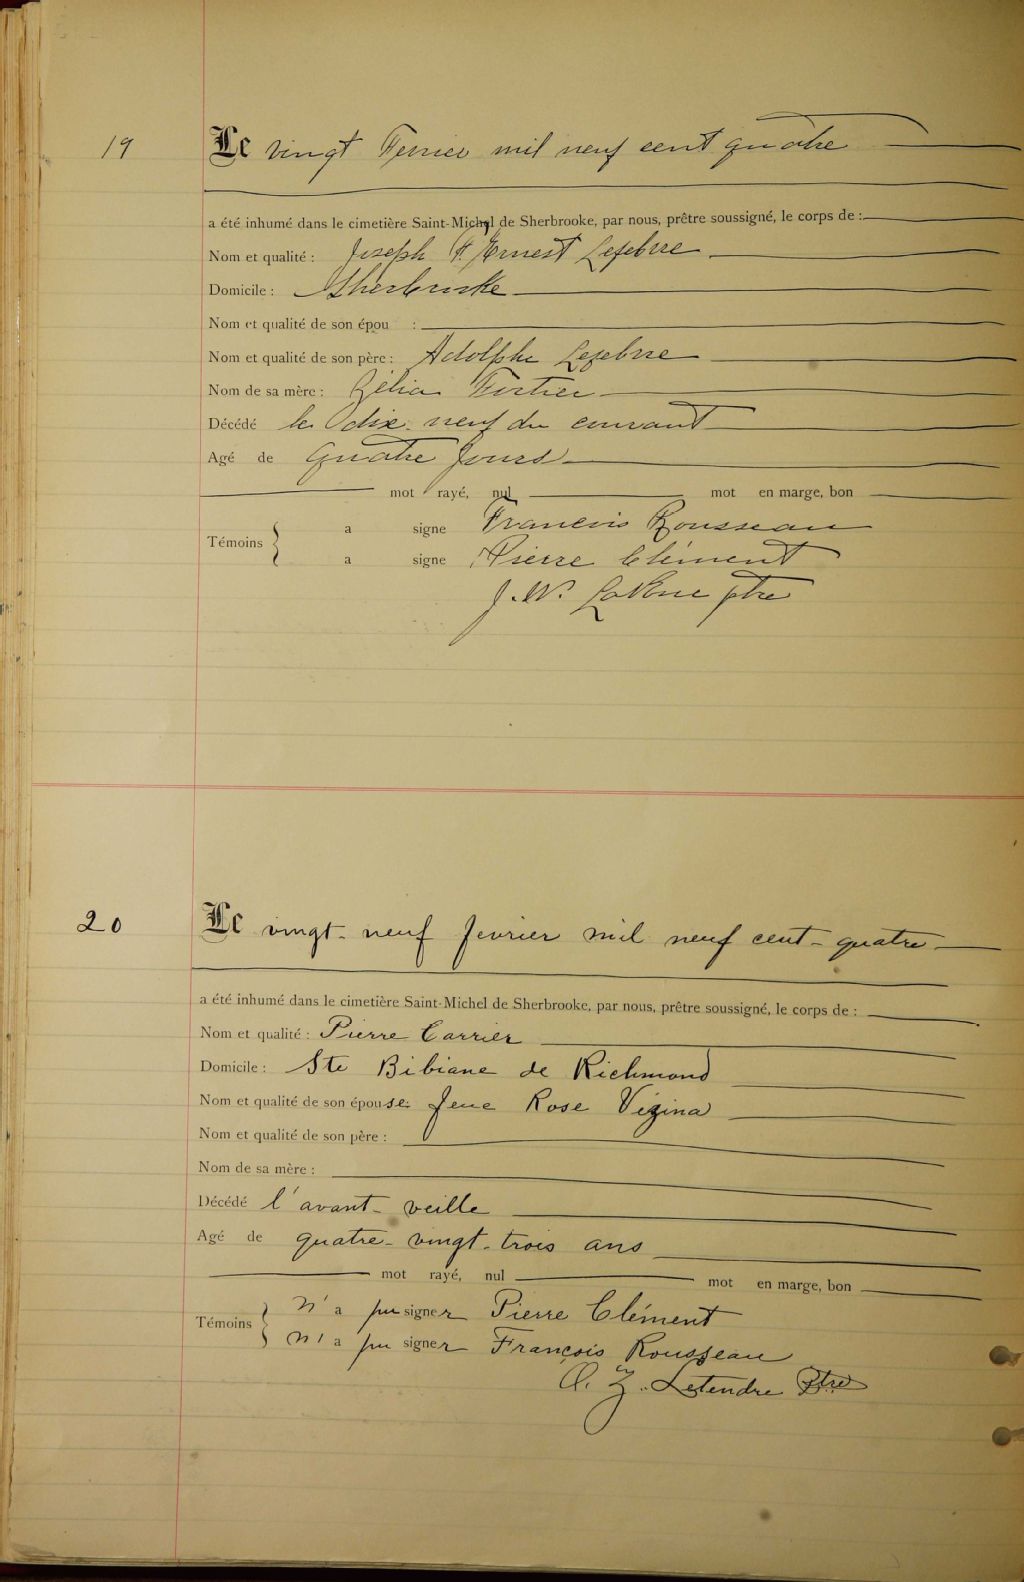 19
Le vingt Fevrier mil neuf cent quatre
a été inhumé dans le cimetière Saint-Michel de Sherbrooke, par nous, prêtre soussigné, le corps de :
Nom et qualité : Joseph F. Ernest Lefebvre
Domicile : Sherbrooke
Nom et qualité de son épou :
Nom et qualité de son père : Adolphe Lefebvre
Nom de sa mère : Zélia Fortier
Décédé le dix-neuf du courant
Agé de quatre jours
mot rayé, nul mot en marge, bon
Témoins
a signe Francois Rousseau
a signe Pierre Clément
J. W. ptre
20
Le vingt-neuf fevrier mil neuf cent-quatre
a été inhumé dans le cimetière Saint-Michel de Sherbrooke, par nous, prêtre soussigné, le corps de :
Nom et qualité : Pierre Carrier
Domicile : Ste Bibiane de Richmond
Nom et qualité de son épouse: feue Rose Vézina
Nom et qualité de son père :
Nom de sa mère :
Décédé l'avant-veille
Agé de quatre-vingt-trois ans
mot rayé, nul mot en marge, bon
Témoins
n'a pu signer Pierre Clément
n'a pu signer François Rousseau
O. Z. Letendre Ptre